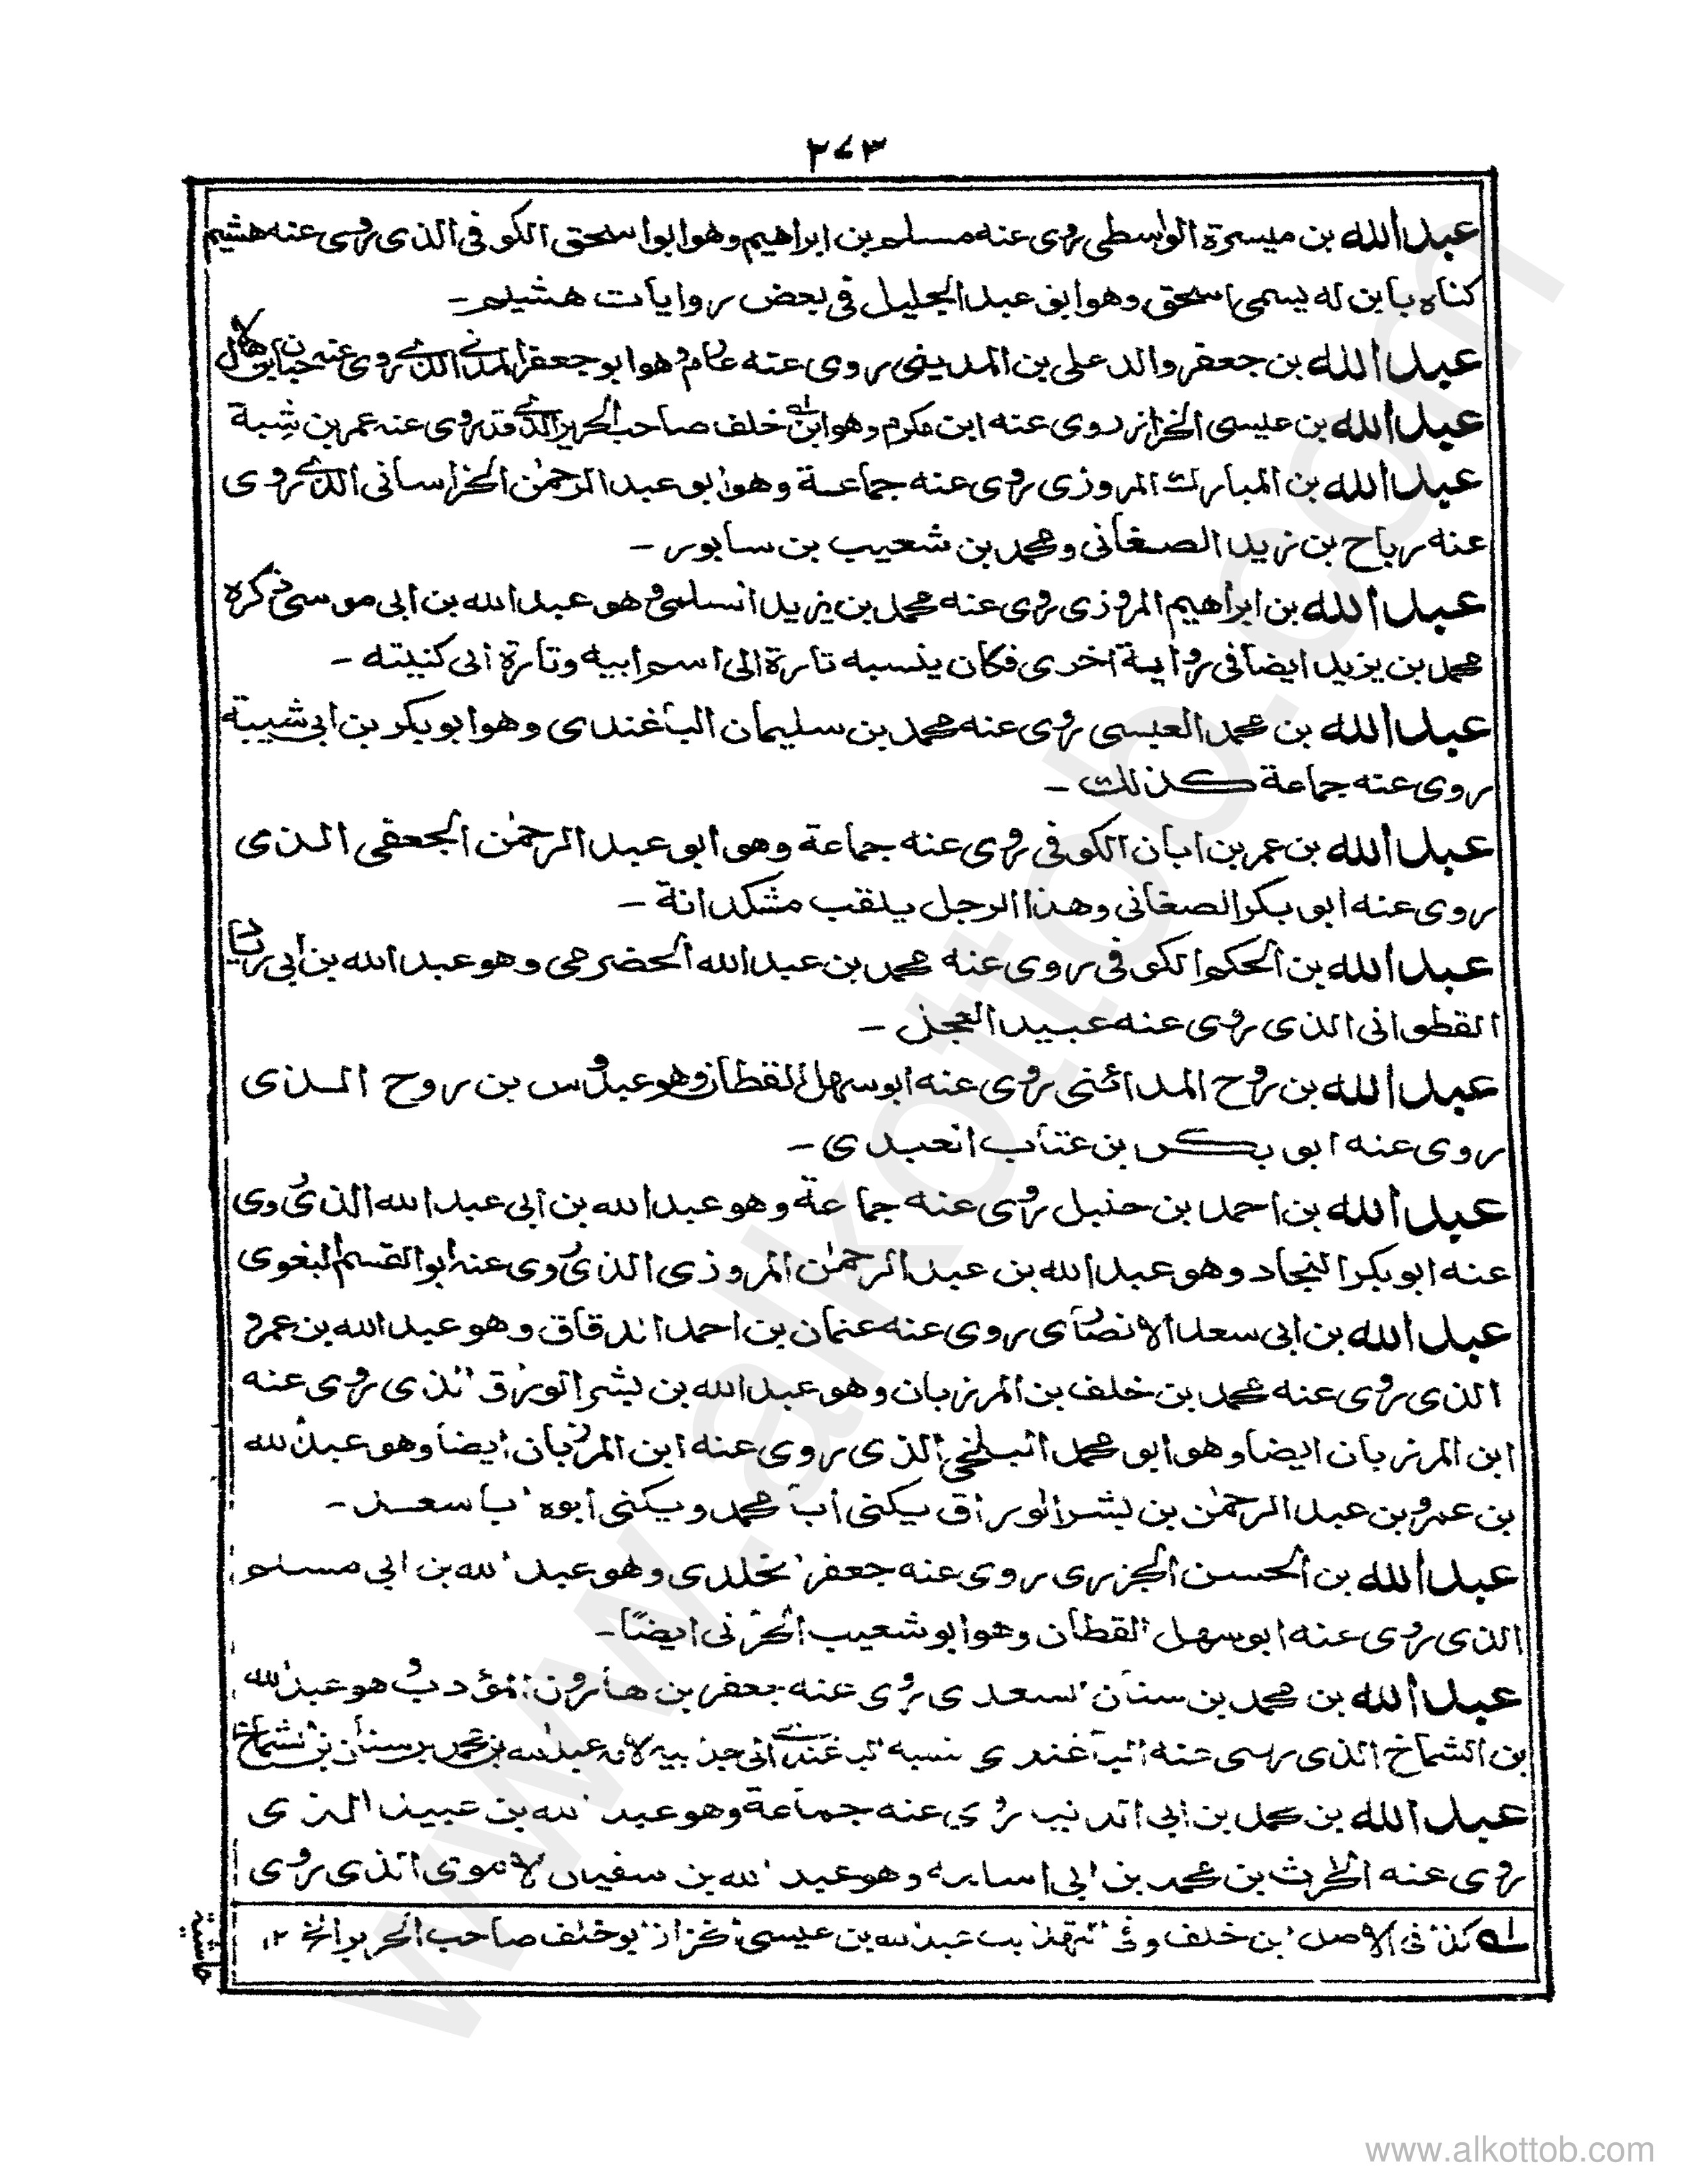 ٢٧٣
عبد الله بن ميسرة الواسطى روى عنه مسلم بن ابراهيم وهو ابو اسحق الكوفى الذى روى عنه هشيم
كناه بابن له يسمى اسحق وهو ابو عبد الجليل فى بعض روايات هشيم ـ
عبد الله بن جعفر والد على بن المدينى روى عنه علم وهو ابو جعفر المدنى الذى روى عنه حبان بن هلال
عبد الله بن عيسى الخزاز روى عنه ابن مكرم وهو ابن خلف صاحب الحرير الذى قد روى عنه عمر بن شبة
عبد الله بن المبارك المروزى روى عنه جماعة وهو ابو عبد الرحمٰن الخراسانى الذى روى
عنه رباح بن زيد الصغانى ومحمد بن شعيب بن سابور ـ
عبد الله بن ابراهيم المروزى روى عنه محمد بن يزيد السلمى وهو عبد الله بن ابى موسى ذكره
محمد بن يزيد ايضا فى رواية اخرى فكان ينسبه تارة الى اسم ابيه وتارة الى كنيته ـ
عبد الله بن محمد العبسى روى عنه محمد بن سليمان الباغندى وهو ابو بكر بن ابى شيبة
روى عنه جماعة كذلك ـ
عبد الله بن عمر بن ابان الكوفى روى عنه جماعة وهو ابو عبد الرحمٰن الجعفى الذى
روى عنه ابو بكر الصغانى وهذا الرجل يلقب مشكدانة ـ
عبد الله بن الحكم الكوفى روى عنه محمد بن عبد الله الحضرمى وهو عبد الله بن ابى زياد
القطوانى الذى روى عنه عبيد العجل ـ
عبد الله بن روح المدائنى روى عنه ابو سهل القطان وهو عبدوس بن روح الذى
روى عنه ابو بكر بن عتاب العبدى ـ
عبد الله بن احمد بن حنبل روى عنه جماعة وهو عبد الله بن ابى عبد الله الذى روى
عنه ابو بكر النجاد وهو عبد الله بن عبد الرحمٰن المروزى الذى روى عنه ابو القسم البغوى
عبد الله بن ابى سعد الانصارى روى عنه عثمان بن احمد الدقاق وهو عبد الله بن عمرو
الذى روى عنه محمد بن خلف بن المرزبان وهو عبد الله بن بشر الوراق الذى روى عنه
ابن المرزبان ايضا وهو ابو محمد البلخى الذى روى عنه ابن المرزبان ايضا وهو عبد الله
بن عمرو بن عبد الرحمٰن بن بشر الوراق يكنى ابا محمد ويكنى ابوه ابا سعد ـ
عبد الله بن الحسن الجزرى روى عنه جعفر الخلدى وهو عبد الله بن ابى مسلم
الذى روى عنه ابو سهل القطان وهو ابو شعيب الحرانى ايضًا ـ
عبد الله بن محمد بن سنان السعدى روى عنه جعفر بن هارون المؤدب وهو عبد الله
بن الشماخ الذى روى عنه الباغندى نسبه الباغندى الى جد ابيه لانه عبد الله بن محمد بن سنان بن الشماخ
عبد الله بن محمد بن ابى الدنيا روى عنه جماعة وهو عبد الله بن عبيد الذى
روى عنه الحرث بن محمد بن ابى اسامه وهو عبد الله بن سفيان الاموى الذى روى
له كذا فى الاصل ابن خلف وفى التهذيب عبد الله بن عيسى الخزاز ابو خلف صاحب الحرير الخ ١٢
حاشية
www.alkottob.com
www.alkottob.com